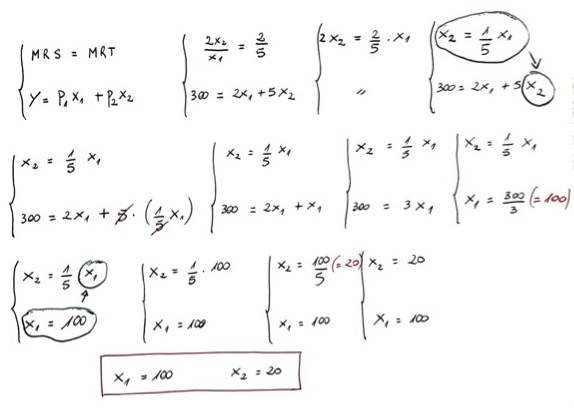 MRS = MRT
Y = P₁x₁ + P₂x₂
2x₂/x₁ = 2/5
300 = 2x₁ + 5x₂
2x₂ = 2/5 · x₁
"
x₂ = 1/5 x₁
300 = 2x₁ + 5 x₂
x₂ = 1/5 x₁
300 = 2x₁ + 5 · (1/5 x₁)
x₂ = 1/5 x₁
300 = 2x₁ + x₁
x₂ = 1/5 x₁
300 = 3x₁
x₂ = 1/5 x₁
x₁ = 300/3 (= 100)
x₂ = 1/5 x₁
x₁ = 100
x₂ = 1/5 · 100
x₁ = 100
x₂ = 100/5 (= 20)
x₁ = 100
x₂ = 20
x₁ = 100
x₁ = 100 x₂ = 20